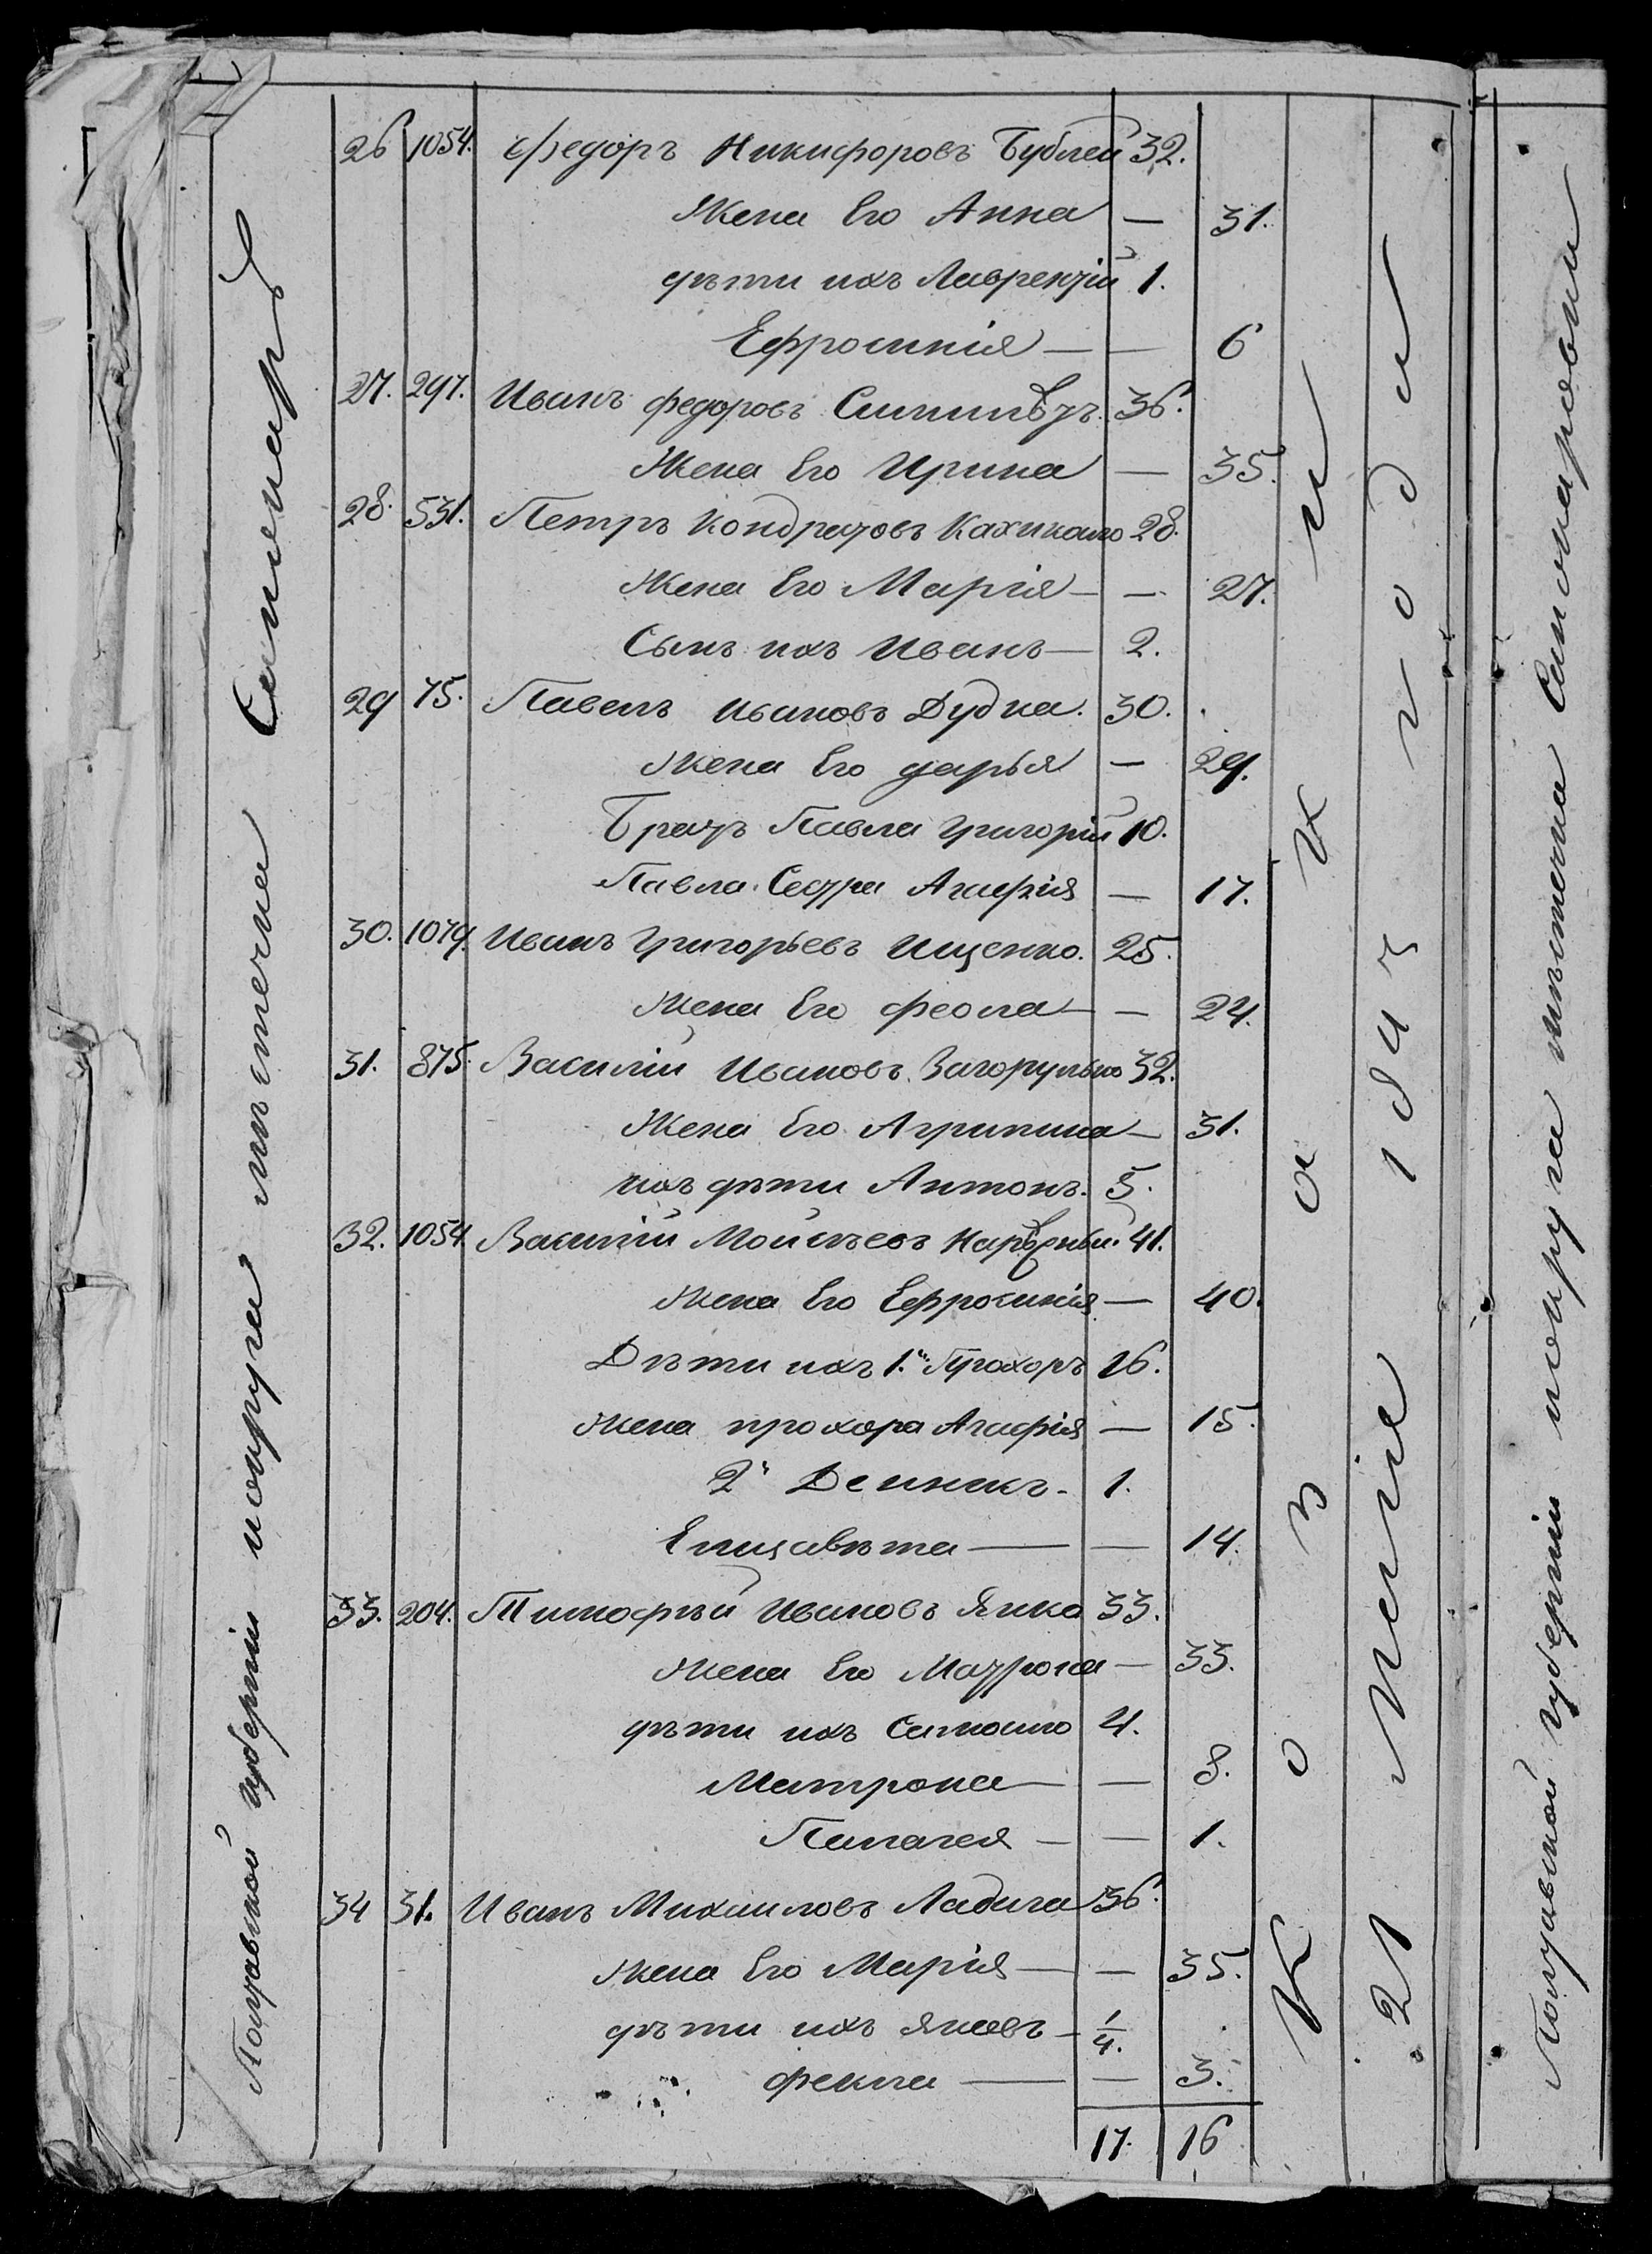 Полтавской губерніи и округа мѣстечка Стинетаръ
26 1054. Федоръ Никифоровъ Бублей 32.
Жена Его Анна — 31.
дѣти ихъ Лаврентій 1.
Ефросинія — — 6
27. 297. Иванъ Федоровъ 36.
Жена Его Ирина — 35.
28. 531. Петръ Кондратовъ Кахикало 28.
Жена Его Марія — — 27.
Сынъ ихъ Иванъ — 2.
29 75. Павелъ Ивановъ Дудка. 30.
Жена Его дарья — 29.
Братъ Павла Григорій 10.
Павла Сестра Агафія — 17.
30. 1079. Иванъ Григорьевъ Ищенко. 25.
Жена Его Феола — — 24.
31. 875. Василій Ивановъ Загорулько 32.
Жена Его Агрипина — 31.
ихъ дѣти Антонъ. 5.
32. 1054 Василій Мойсѣевъ 41.
Жена Его Ефросинія — 40.
Дѣти ихъ 1.й Прохоръ 16.
Жена прохора Агафія — 15.
2й Денисъ. 1.
Елисавѣта — — 14.
33. 204. Тимофѣй Ивановъ Янко 33.
Жена Его Матрона — 33.
дѣти ихъ Самойло 4.
Матрона — — 8.
Палагея — — 1.
34 31. Иванъ Михаиловъ Ладига 36.
Жена Его Марія — — 35.
дѣти ихъ Яковъ — 1/4.
Фекла — — 3.
17. 16
Козаки
21 Мсия 184 годи
Полтавской губерніи и округа мѣстечка